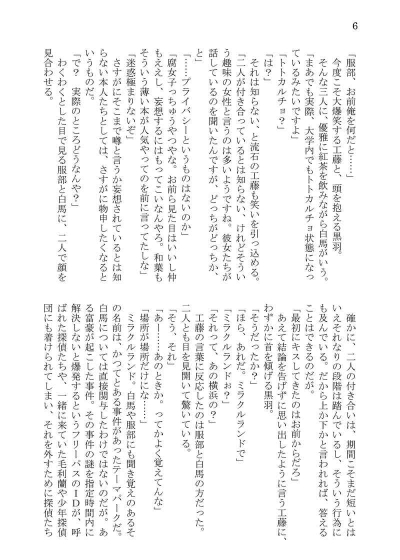 6
『服部、お前俺を何だと……』
今度こそ大爆笑する工藤と、頭を抱える黒羽。
そんな三人に、優雅に紅茶を飲みながら白馬がいう。
「まあでも実際、大学内でもトトカルチョ状態になっ
ているみたいですよ」
「トトカルチョ？」
それは知らない、と流石の工藤も笑いを引っ込める。
「二人が付き合っているとは知らない、けれどそうい
う趣味の女性と言うのは多いようですね。彼女たちが
話しているのを聞いたんですが、どっちがどっちか、
と」
「……プライバシーというものはないのか」
「腐女子っちゅうやつやな。お前ら見た目はいいし仲
もええし、妄想するにはもってこいなんやろ。和葉も
そういう薄い本が人気やってのを前に言ってたしな」
「迷惑極まりないぞ」
さすがにそこまで噂と言うか妄想されているとは知
らない本人たちとしては、さすがに物申したくなると
いうものだ。
「で？　実際のところどうなんや？」
わくわくとした目で見る服部と白馬に、二人で顔を
見合わせる。
確かに、二人の付き合いは、期間こそまだ短いとは
いえそれなりの段階は踏んでいるし、そういう行為に
も及んでいる。だから上か下かと言われれば、答える
ことはできるのだが。
「最初にキスしてきたのはお前からだろ」
あえて結論を告げずに思い出したように言う工藤に、
わずかに首を傾げる黒羽。
「そうだったか？」
「ほら、あれだ。ミラクルランドで」
「ミラクルランドぉ？」
「それって、あの横浜の？」
工藤の言葉に反応したのは服部と白馬の方だった。
二人とも目を見開いて驚いている。
「そう、それ」
「あー……あのときか。ってかよく覚えてんな」
「場所が場所だけにな……」
ミラクルランド。白馬や服部にも聞き覚えのあるそ
の名前は、かつてとある事件があったテーマパークだ。
白馬については直接関与したわけではないのだが、あ
る富豪が起こした事件。その事件の謎を指定時間内に
解決しないと爆発するというフリーパスのIDが、呼
ばれた探偵たちや、一緒に来ていた毛利蘭や少年探偵
団にも着けられてしまい、それを外すために探偵たち